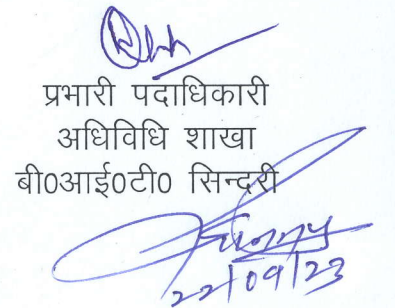 प्रभारी पदाधिकारी
अधिविधि शाखा
बी0आई0टी0 सिन्दरी
22/09/23